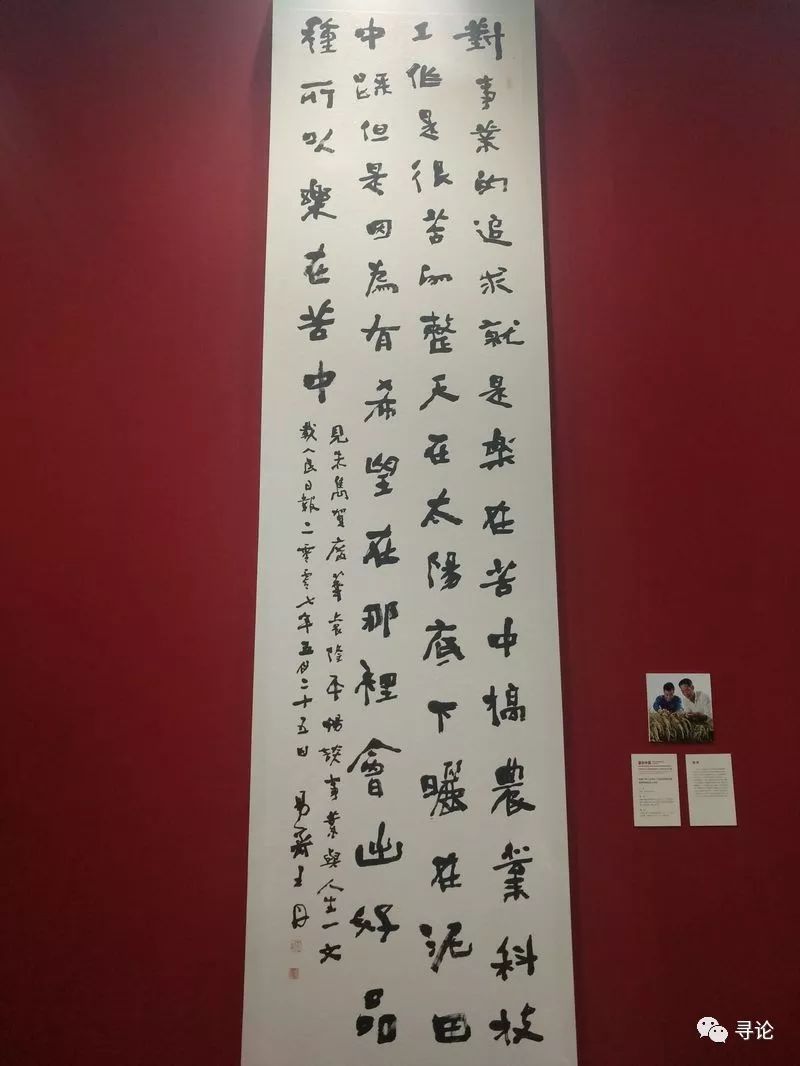 對事業的追求就是楽在苦中搞農業科技
工作是很苦的整天在太陽底下曬在泥田
中踩但是因為有希望在那裡會出好品
種所以樂在苦中
見朱雋賀廣華袁隆平暢談事業與人生一文
載人民日報二零零七年五月二十五日 易齋王丹
寻论